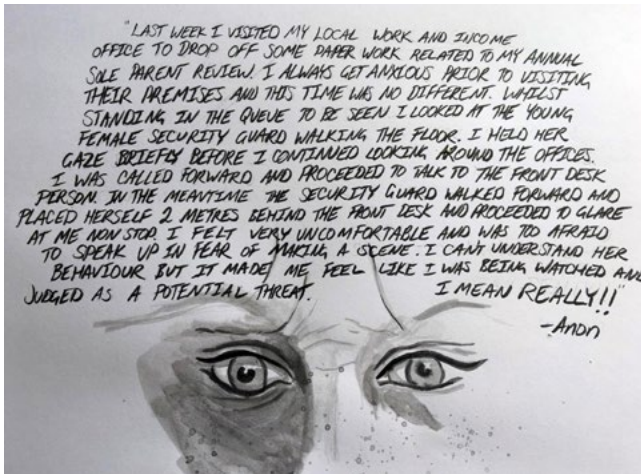 "LAST WEEK I VISITED MY LOCAL WORK AND INCOME
OFFICE TO DROP OFF SOME PAPER WORK RELATED TO MY ANNUAL
SOLE PARENT REVIEW. I ALWAYS GET ANXIOUS PRIOR TO VISITING
THEIR PREMISES AND THIS TIME WAS NO DIFFERENT. WHILST
STANDING IN THE QUEUE TO BE SEEN I LOOKED AT THE YOUNG
FEMALE SECURITY GUARD WALKING THE FLOOR. I HELD HER
GAZE BRIEFLY BEFORE I CONTINUED LOOKING AROUND THE OFFICES.
I WAS CALLED FORWARD AND PROCEEDED TO TALK TO THE FRONT DESK
PERSON. IN THE MEANTIME THE SECURITY GUARD WALKED FORWARD AND
PLACED HERSELF 2 METRES BEHIND THE FRONT DESK AND PROCEEDED TO GLARE
AT ME NON STOP. I FELT VERY UNCOMFORTABLE AND WAS TOO AFRAID
TO SPEAK UP IN FEAR OF MAKING A SCENE. I CANT UNDERSTAND HER
BEHAVIOUR BUT IT MADE ME FEEL LIKE I WAS BEING WATCHED AND
JUDGED AS A POTENTIAL THREAT. I MEAN REALLY!!"
-Anon